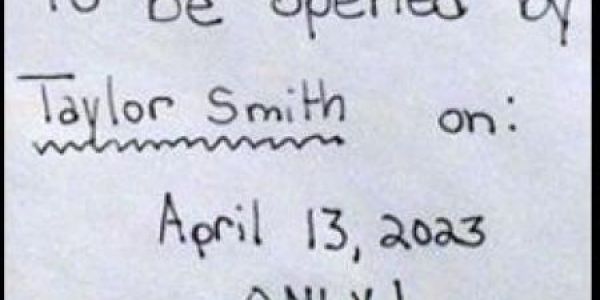 To be opened by
Taylor Smith on:
April 13, 2023
ONLY!